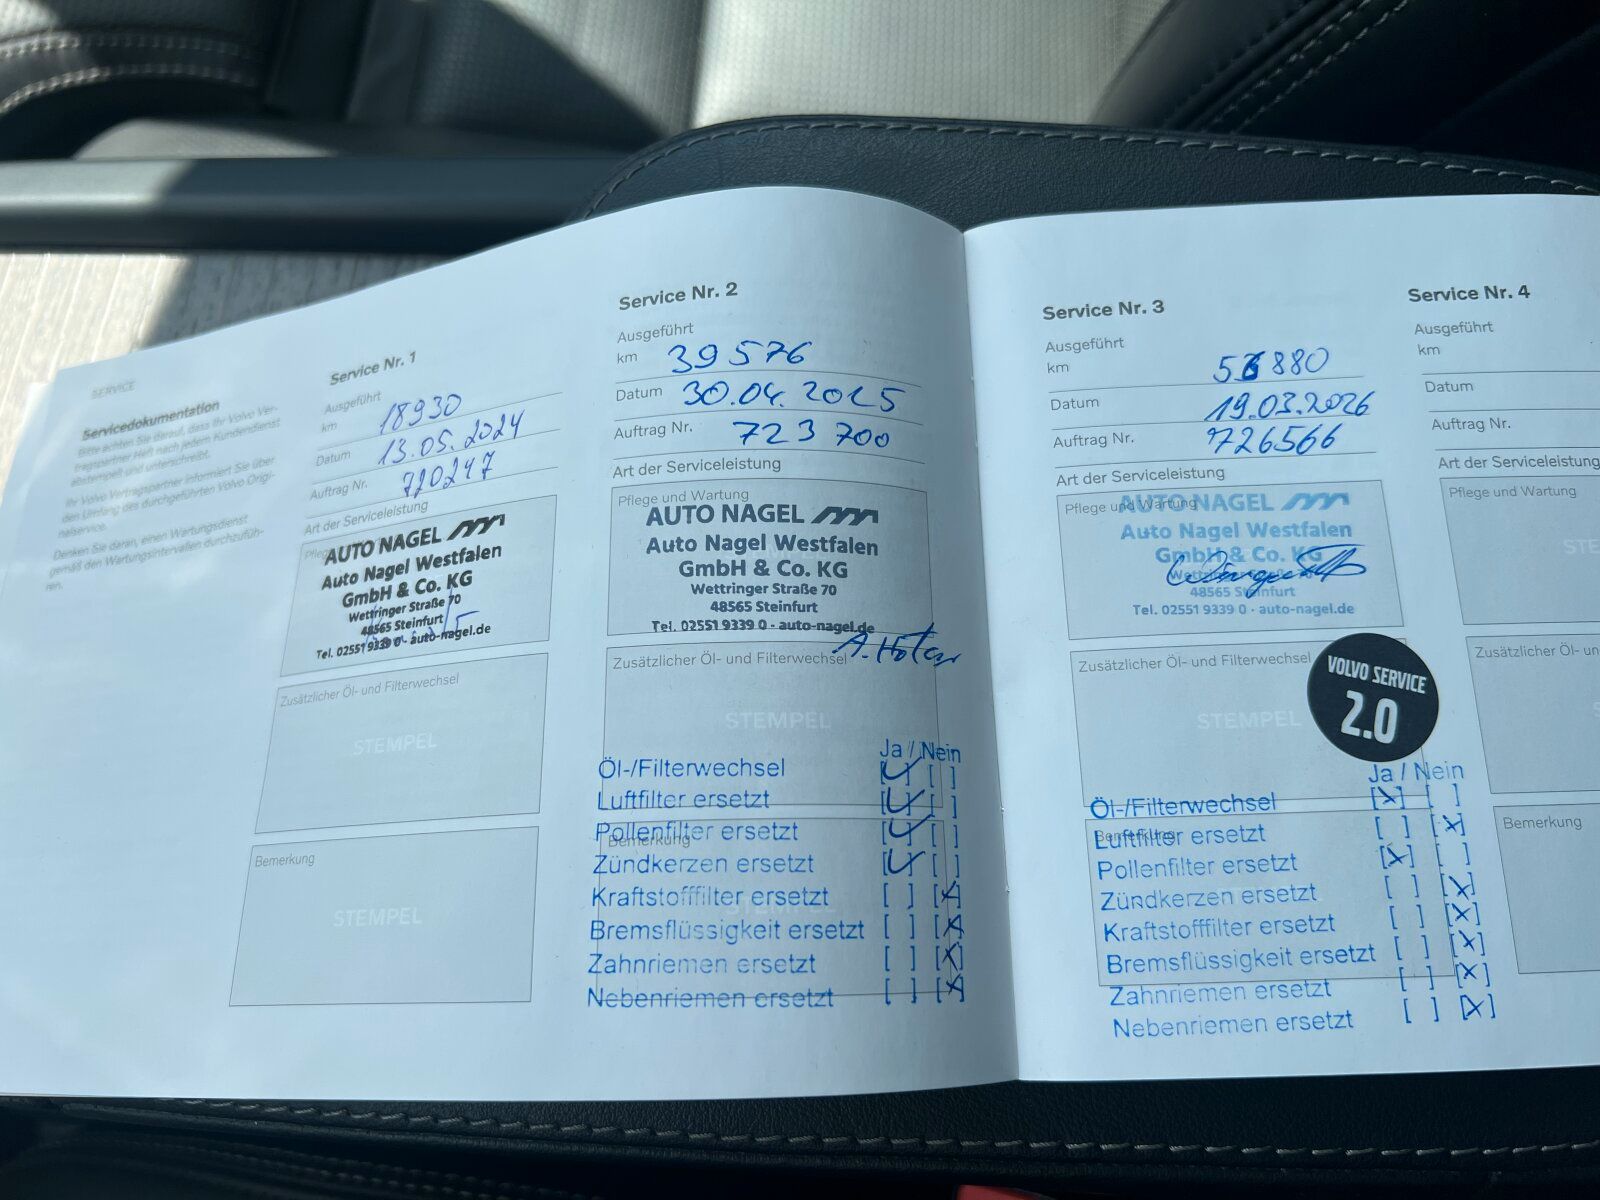 SERVICE
Servicedokumentation
Bitte achten Sie darauf, dass Ihr Volvo Ver-
tragspartner Heft nach jedem Kundendienst
abstempelt und unterschreibt.
Ihr Volvo Vertragspartner informiert Sie über
den Umfang des durchgeführten Volvo Origi-
nalservice.
Denken Sie daran, einen Wartungsdienst
gemäß den Wartungsintervallen durchzufüh-
ren.
Service Nr. 1
Ausgeführt
km 18930
Datum 13.05.2024
Auftrag Nr. 720247
Art der Serviceleistung
AUTO NAGEL
Auto Nagel Westfalen
GmbH & Co. KG
Wettringer Straße 70
48565 Steinfurt
Tel. 02551 9339 0 - auto-nagel.de
Zusätzlicher Öl- und Filterwechsel
STEMPEL
Bemerkung
STEMPEL
Service Nr. 2
Ausgeführt
km 39576
Datum 30.04.2025
Auftrag Nr. 723700
Art der Serviceleistung
Pflege und Wartung
AUTO NAGEL
Auto Nagel Westfalen
GmbH & Co. KG
Wettringer Straße 70
48565 Steinfurt
Tel. 02551 9339 0 - auto-nagel.de
Zusätzlicher Öl- und Filterwechsel
STEMPEL
Ja / Nein
Öl-/Filterwechsel
Luftfilter ersetzt
Pollenfilter ersetzt
Bemerkung
Zündkerzen ersetzt
Kraftstofffilter ersetzt
STEMPEL
Bremsflüssigkeit ersetzt
Zahnriemen ersetzt
Nebenriemen ersetzt
Service Nr. 3
Ausgeführt
km 56880
Datum 19.03.2026
Auftrag Nr. 726566
Art der Serviceleistung
Pflege und Wartung
AUTO NAGEL
Auto Nagel Westfalen
GmbH & Co. KG
Wettringer Straße 70
48565 Steinfurt
Tel. 02551 9339 0 - auto-nagel.de
Zusätzlicher Öl- und Filterwechsel
STEMPEL
VOLVO SERVICE
2.0
Ja / Nein
Öl-/Filterwechsel
Bemerkung
Luftfilter ersetzt
Pollenfilter ersetzt
Zündkerzen ersetzt
Kraftstofffilter ersetzt
Bremsflüssigkeit ersetzt
Zahnriemen ersetzt
Nebenriemen ersetzt
Service Nr. 4
Ausgeführt
km
Datum
Auftrag Nr.
Art der Serviceleistung
Pflege und Wartung
STE
Zusätzlicher Öl- und
Bemerkung